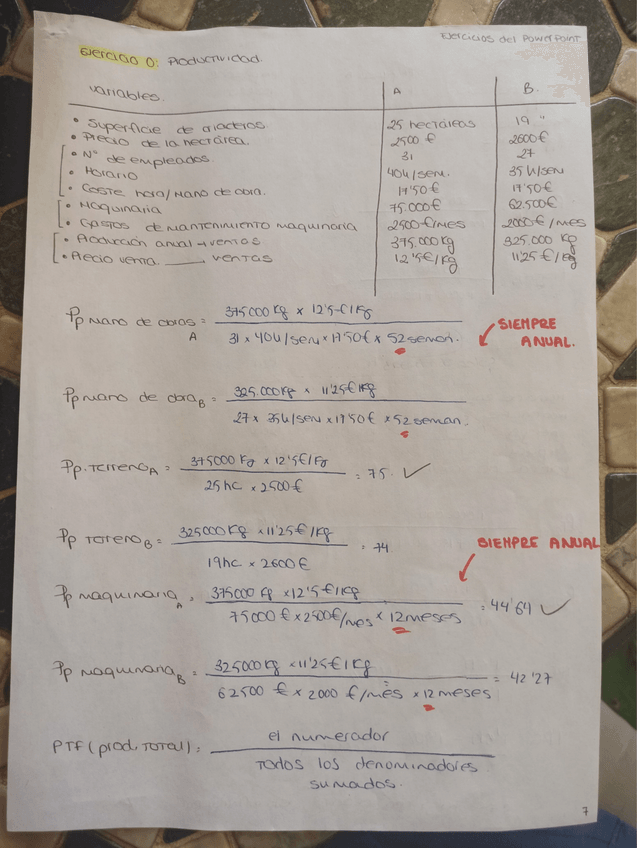 Ejercicios del PowerPoint
Ejercicio 0: Productividad.
Variables. A B
• Superficie de viveros 25 hectáreas 19 "
• Precio de la hectárea. 2500 € 2600€
• Nº de empleados. 31 27
• Horario 40h/sem. 35 h/sem
• Coste hora/mano de obra. 17'50€ 17'50€
• Maquinaria 75.000€ 62.500€
• Gastos de mantenimiento maquinaria 2500€/mes 2000€/mes
• Producción anual → ventas 375.000kg 325.000 kg
• Precio venta. ___ ventas 12'5€/kg 11'25€/kg
Pp mano de obras A = 375000 kg x 12'5€/kg
31 x 40h/sem x 17'50€ x 52 seman.
SIEMPRE ANUAL.
Pp mano de obra B = 325.000kg x 11'25€/kg
27 x 35h/sem x 17'50€ x 52 seman.
Pp. terreno A = 375000 kg x 12'5€/kg = 75. ✓
25 hc x 2500€
Pp terreno B = 325000 kg x 11'25€/kg = 74
19hc x 2600€
SIEMPRE ANUAL
Pp maquinaria A = 375000 kg x 12'5€/kg = 44'64 ✓
75000 € x 2500€/mes x 12 meses
Pp maquinaria B = 325000kg x 11'25€/kg = 42'27
62500 € x 2000 €/mes x 12 meses
PTF (prod. TOTAL) = el numerador
Todos los denominadores
sumados.
7